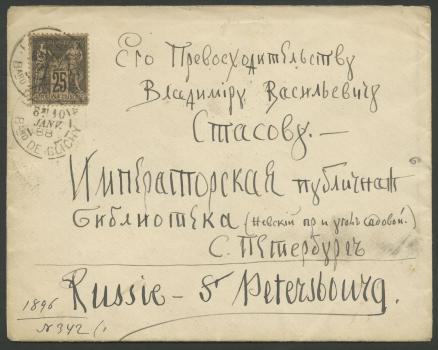 25
JANV
88
Bd DE CLICHY
Его Превосходительству
Владиміру Васильевичу
Стасову. —
Императорская публичная
библиотека (Невскій пр и уголъ садовой.)
С. Петербургъ
Russie — St Petersbourg.
1896
N 342